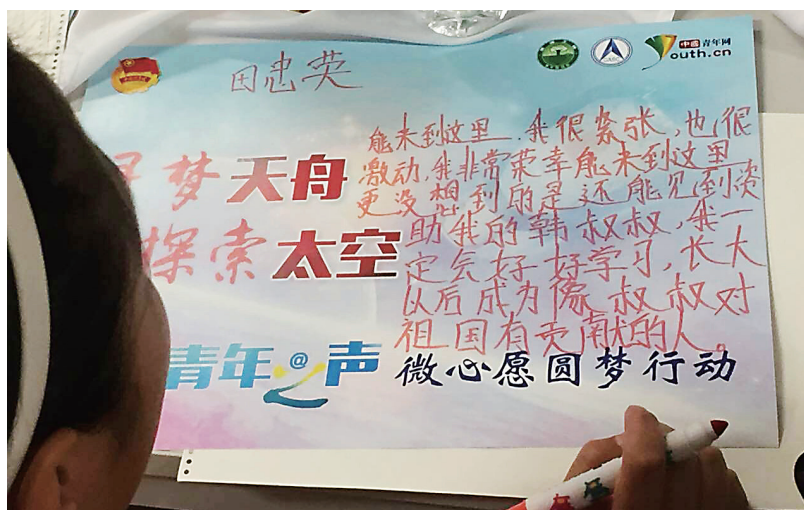 中国青年网
Youth.cn
田忠英
能来到这里,我很紧张,也很
激动,我非常荣幸能来到这里
更没想到的是还能见到资
助我的韩叔叔,我一
定会好好学习,长大
以后成为像叔叔对
祖国有贡献的人。
寻梦天舟
探索太空
青年@之声 微心愿圆梦行动